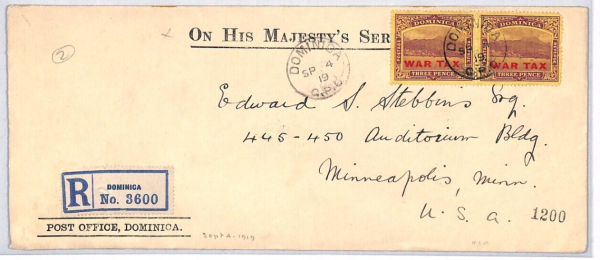 2
On His Majesty's Ser
DOMINICA
SP 4
19
G.P.O.
DOMINICA
WAR TAX
THREE PENCE
DOMINICA
WAR TAX
THREE PENCE
Edward S. Stebbins Esq.
445-450 Auditorium Bldg.
Minneapolis, Minn.
U. S. A. 1200
R DOMINICA
No. 3600
POST OFFICE, DOMINICA.
Sept 4-1919